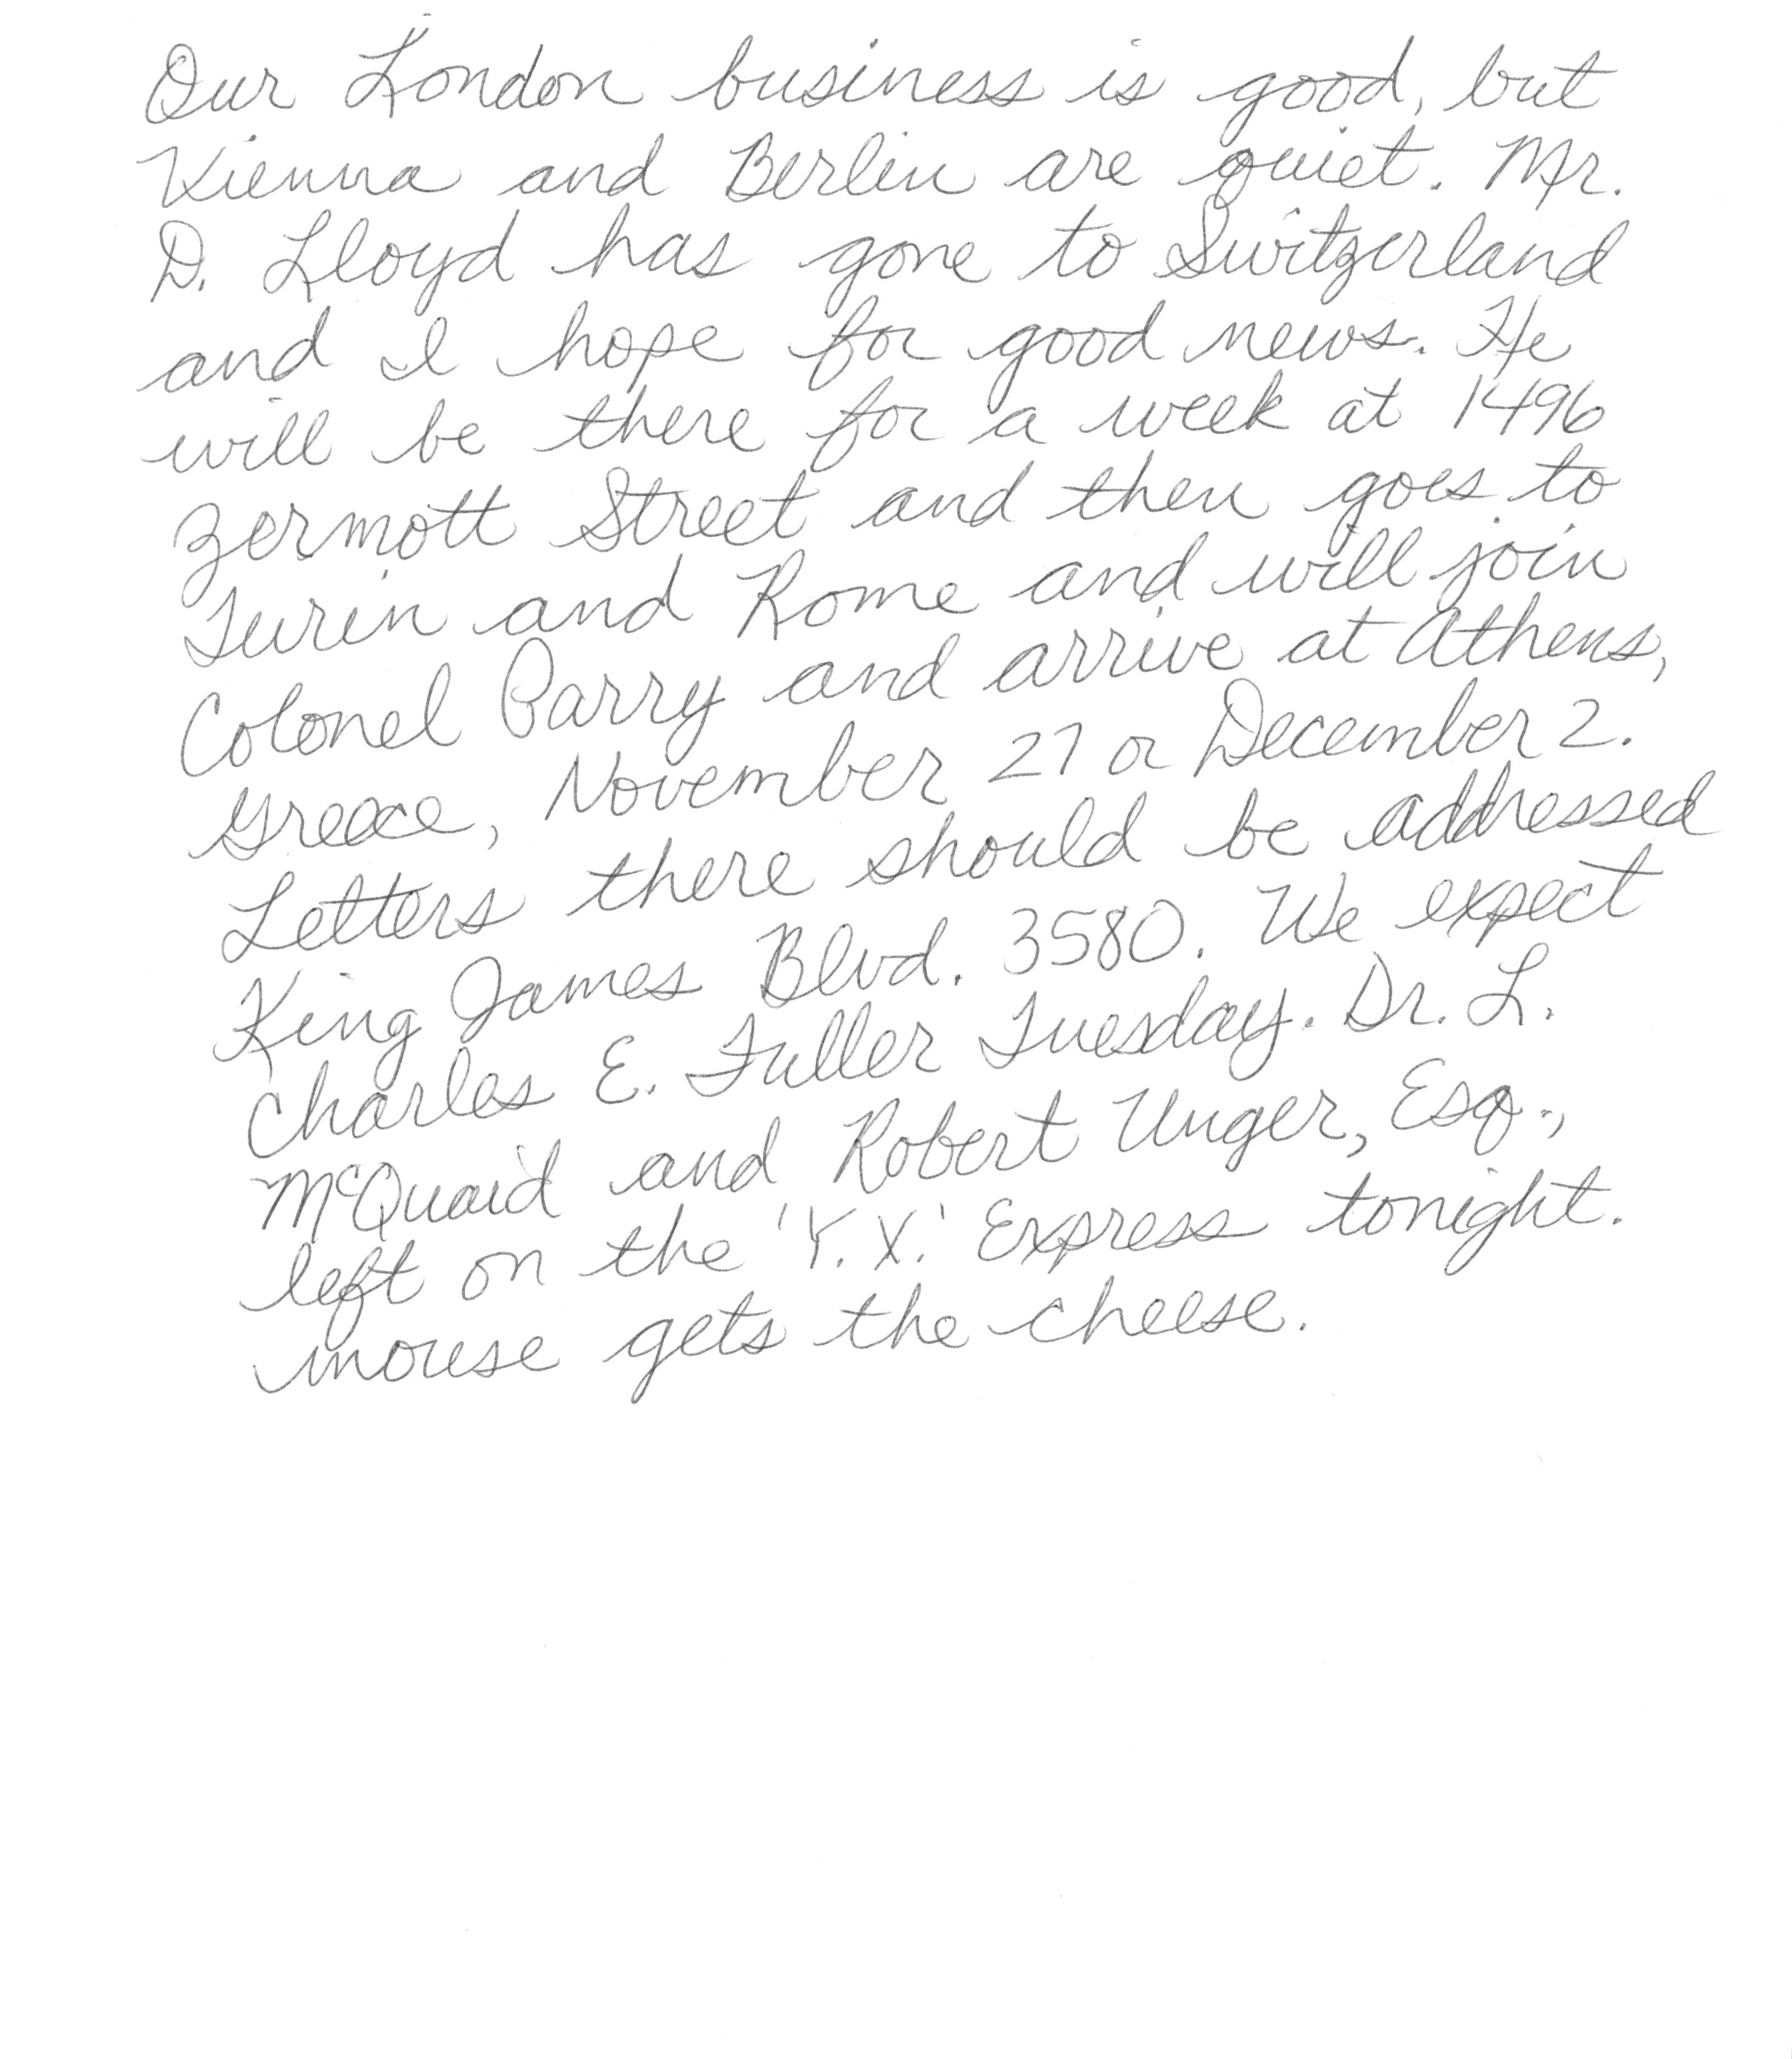 Our London business is good, but
Vienna and Berlin are quiet. Mr.
D. Lloyd has gone to Switzerland
and I hope for good news. He
will be there for a week at 1496
Zermott Street and then goes to
Turin and Rome and will join
Colonel Parry and arrive at Athens,
Greece, November 27 or December 2.
Letters there should be addressed
King James Blvd. 3580. We expect
Charles E. Fuller Tuesday. Dr. L.
McQuaid and Robert Unger, Esq.,
left on the 'Y.X.' Express tonight.
mouse gets the cheese.